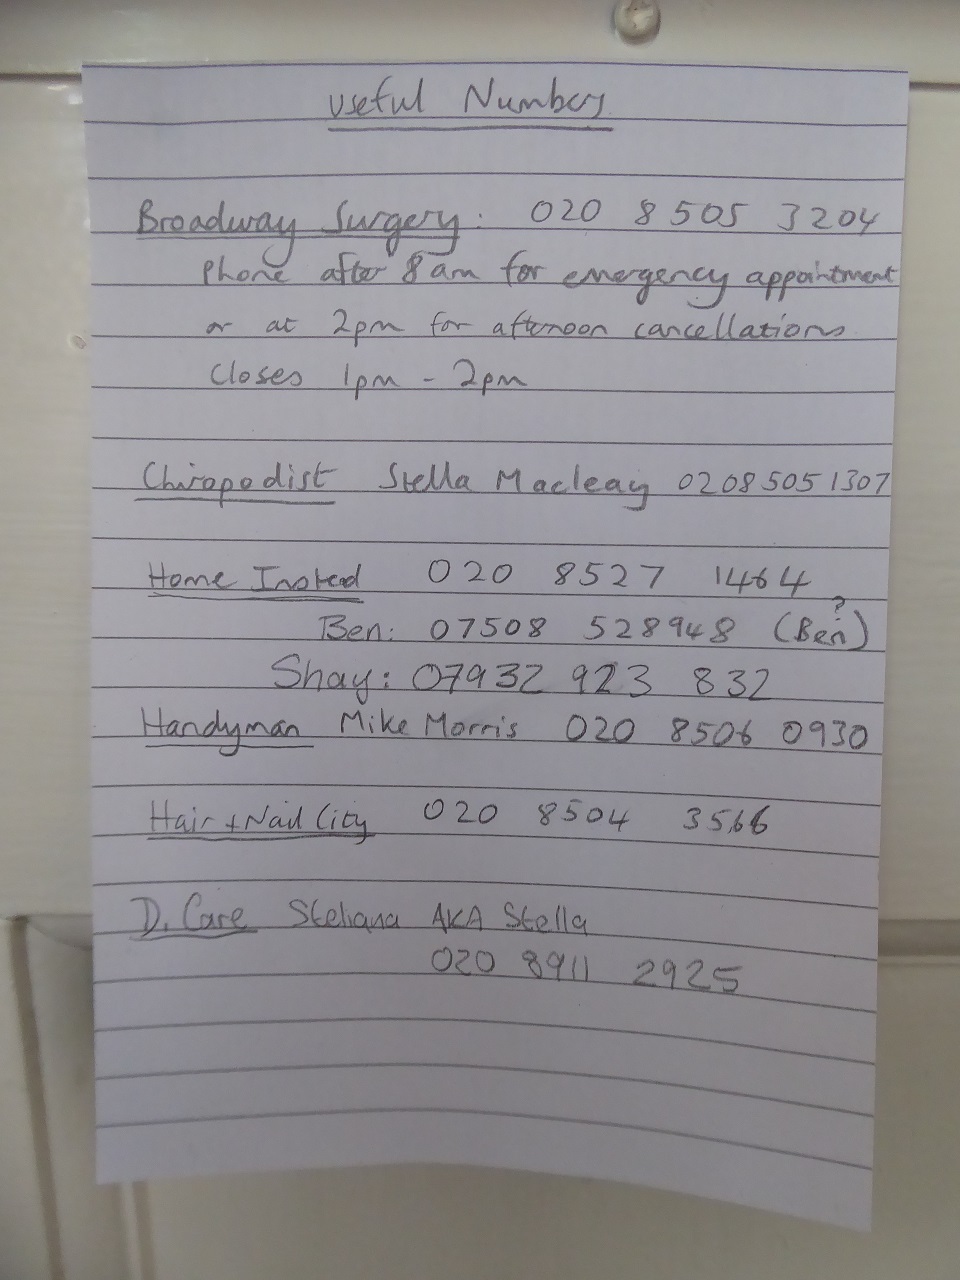 Useful Numbers
Broadway Surgery: 020 8505 3204
Phone after 8am for emergency appointment
or at 2pm for afternoon cancellations
Closes 1pm - 2pm
Chiropodist Stella Macleay 02085051307
Home Instead 020 8527 1464
Ben: 07508 528948 (Ben?)
Shay: 07932 923 832
Handyman Mike Morris 020 8506 0930
Hair + Nail City 020 8504 3566
D. Care Steliana AKA Stella
020 8911 2925